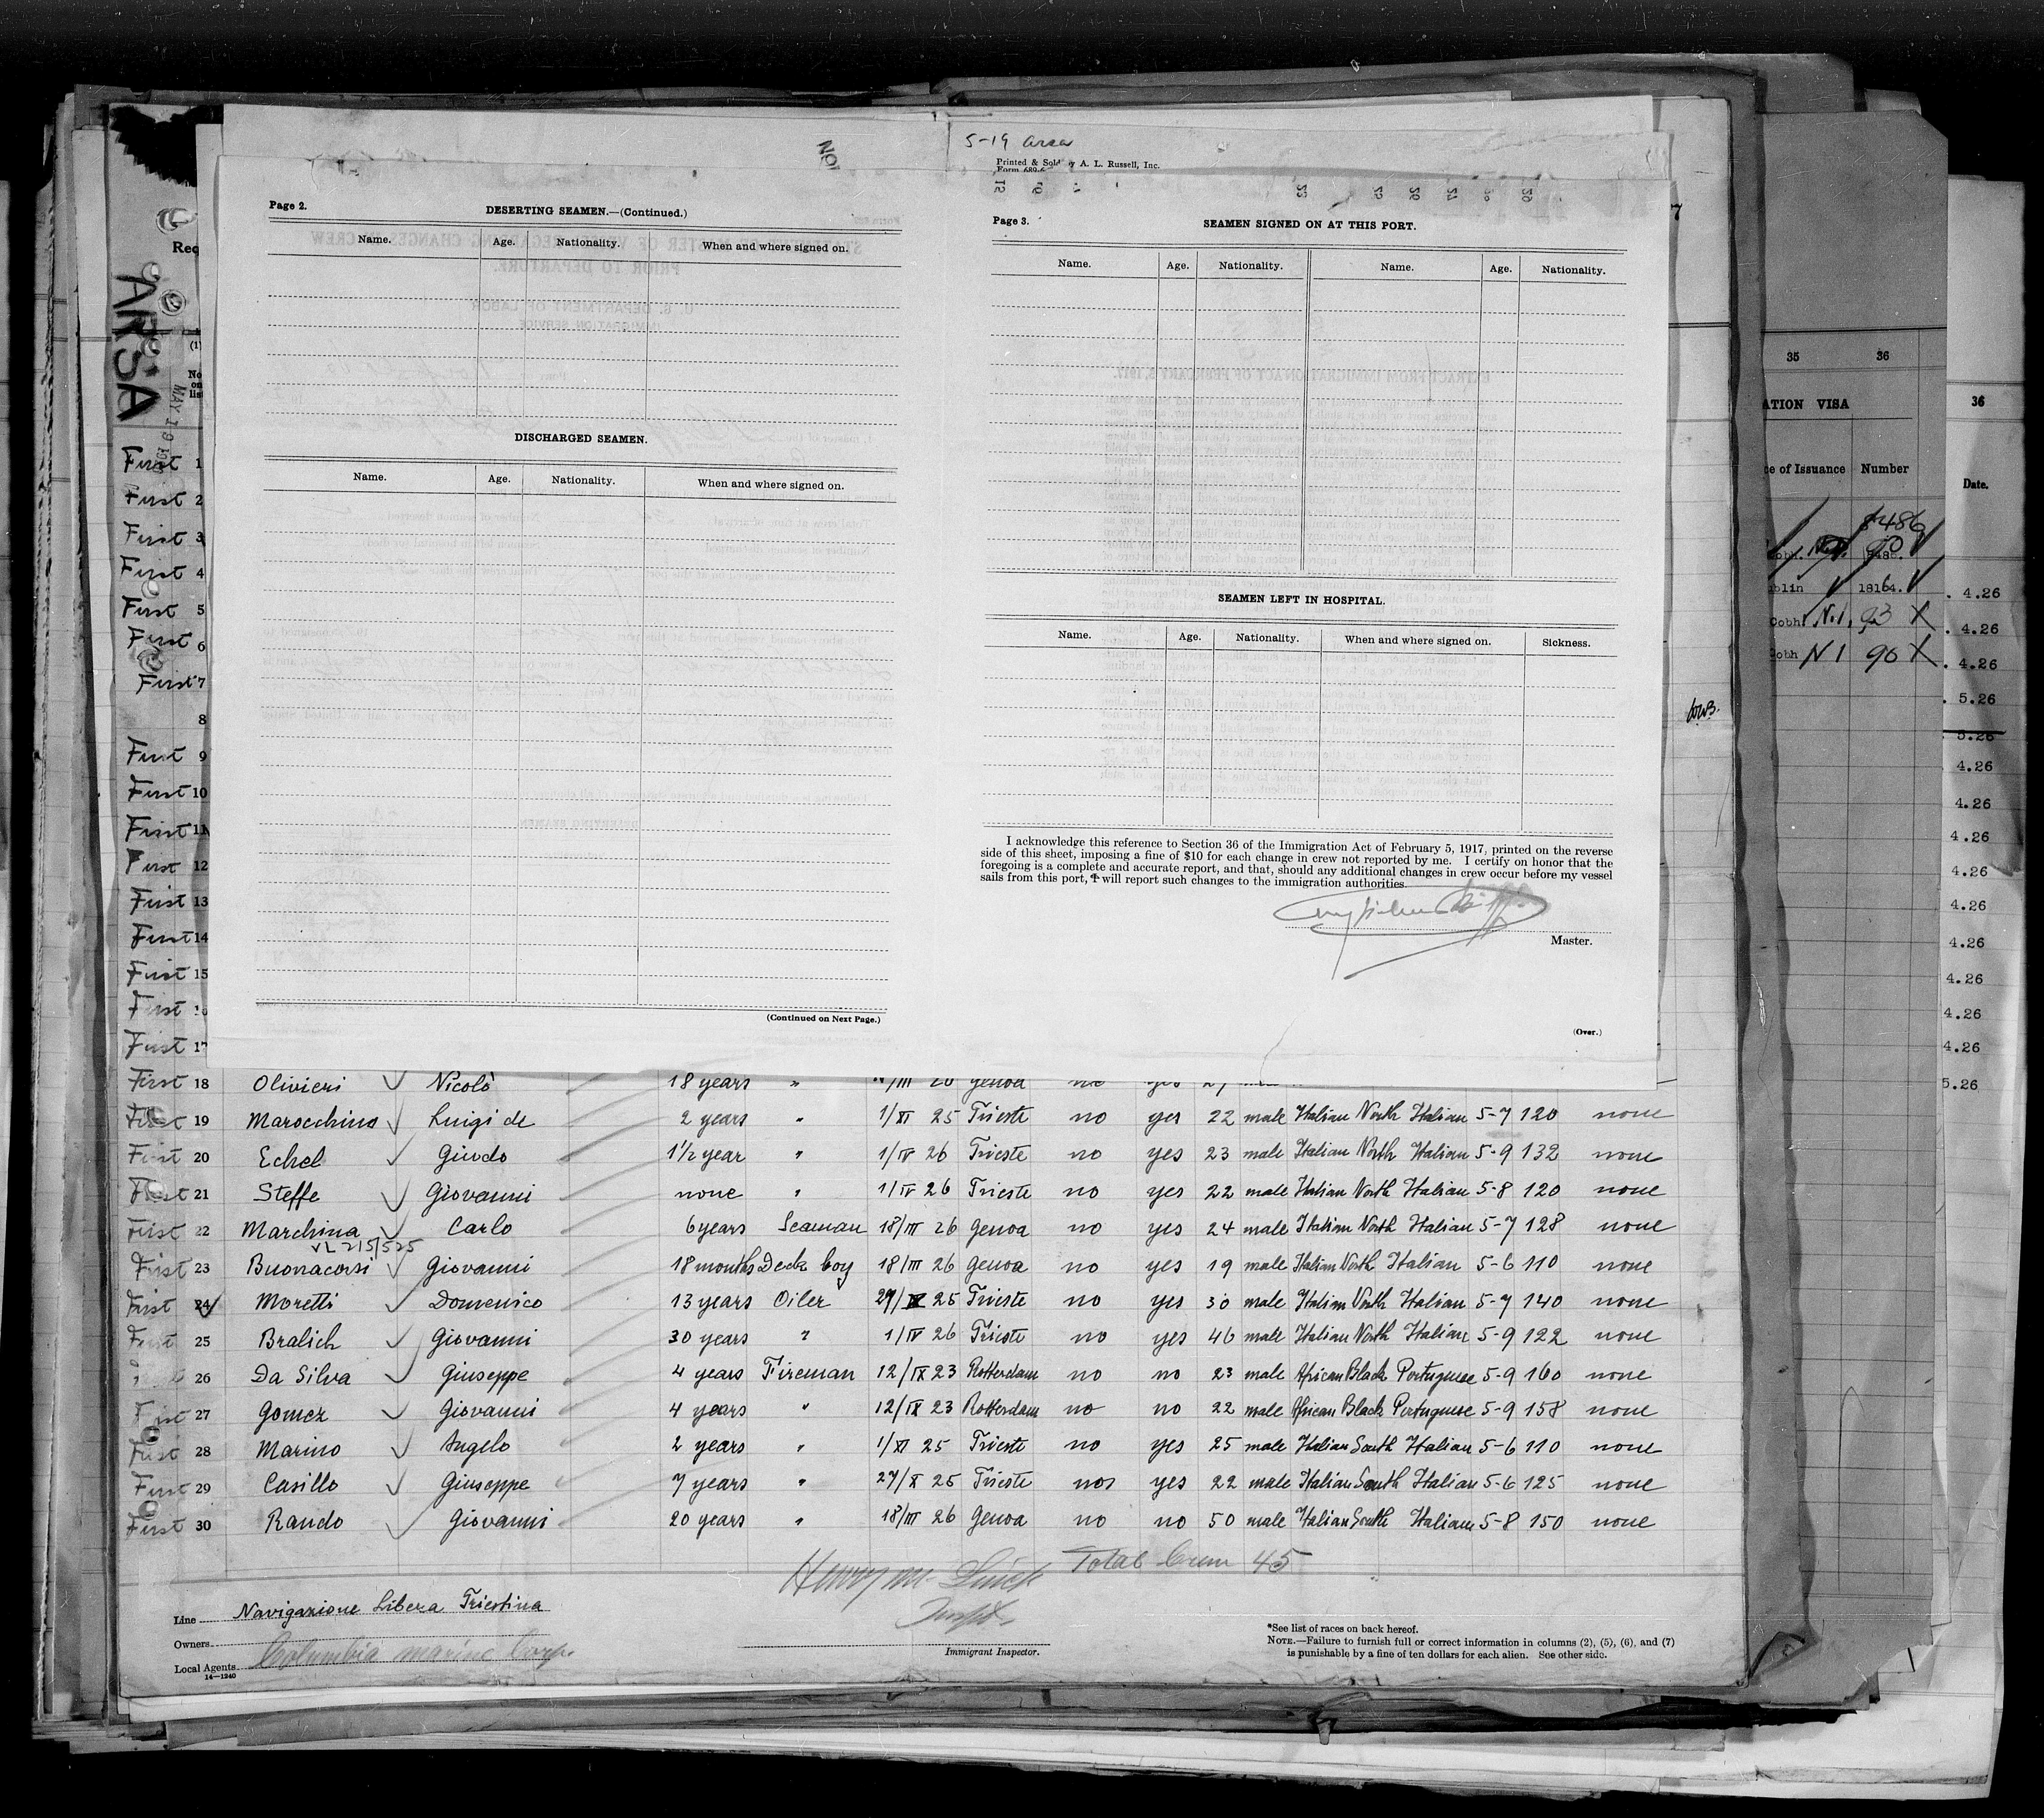 5-19 Arsa
Printed & Sold by A. L. Russell, Inc.
Form 689
Page 2.
DESERTING SEAMEN.—(Continued.)
Name. Age. Nationality. When and where signed on.
DISCHARGED SEAMEN.
Name. Age. Nationality. When and where signed on.
(Continued on Next Page.)
Page 3.
SEAMEN SIGNED ON AT THIS PORT.
Name. Age. Nationality. Name. Age. Nationality.
SEAMEN LEFT IN HOSPITAL.
Name. Age. Nationality. When and where signed on. Sickness.
I acknowledge this reference to Section 36 of the Immigration Act of February 5, 1917, printed on the reverse
side of this sheet, imposing a fine of $10 for each change in crew not reported by me. I certify on honor that the
foregoing is a complete and accurate report, and that, should any additional changes in crew occur before my vessel
sails from this port, I will report such changes to the immigration authorities.
Master.
(Over.)
Req
ARSA
(1)
No
on
list
First 1
First 2
First 3
First 4
First 5
First 6
First 7
8
First 9
First 10
First 11
First 12
First 13
First 14
First 15
First 16
First 17
First 18 Olivieri Nicolò 18 years " genoa
First 19 Marocchino Luigi de 2 years " 1/XI 25 Trieste no yes 22 male Italian North Italian 5-7 120 none
First 20 Echel Giuodo 1½ year " 1/IV 26 Trieste no yes 23 male Italian North Italian 5-9 132 none
First 21 Steffe Giovanni none " 1/IV 26 Trieste no yes 22 male Italian North Italian 5-8 120 none
First 22 Marchina Carlo 6 years Seaman 18/III 26 genoa no yes 24 male Italian North Italian 5-7 128 none
VL 215/525
First 23 Buonacorsi Giovanni 18 months Deck boy 18/III 26 genoa no yes 19 male Italian North Italian 5-6 110 none
First 24 Moretti Domenico 13 years Oiler 29/IX 25 Trieste no yes 30 male Italian North Italian 5-7 140 none
First 25 Bralich Giovanni 30 years " 1/IV 26 Trieste no yes 46 male Italian North Italian 5-9 122 none
26 Da Silva Giuseppe 4 years Fireman 12/IX 23 Rotterdam no no 23 male African Black Portuguese 5-9 160 none
First 27 Gomez Giovanni 4 years " 12/IX 23 Rotterdam no no 22 male African Black Portuguese 5-9 158 none
First 28 Marino Angelo 2 years " 1/XI 25 Trieste no yes 25 male Italian South Italian 5-6 110 none
First 29 Casillo Giuseppe 7 years " 27/X 25 Trieste no yes 22 male Italian South Italian 5-6 125 none
First 30 Rando Giovanni 20 years " 18/III 26 Genoa no no 50 male Italian South Italian 5-8 150 none
Total Crew 45
Line Navigazione Libera Triestina
Owners
Local Agents Columbia Marine Corp.
14—1240
Immigrant Inspector.
*See list of races on back hereof.
NOTE.—Failure to furnish full or correct information in columns (2), (5), (6), and (7)
is punishable by a fine of ten dollars for each alien. See other side.
7
35 36
ATION VISA
ce of Issuance Number
8486
Cobh.
ublin 18164.
Cobh N.1, 93 X
Cobh N 1 90 X
36
Date.
. 4.26
. 4.26
. 4.26
. 5.26
5.26
4.26
4.26
4.26
4.26
4.26
4.26
4.26
4.26
4.26
5.26